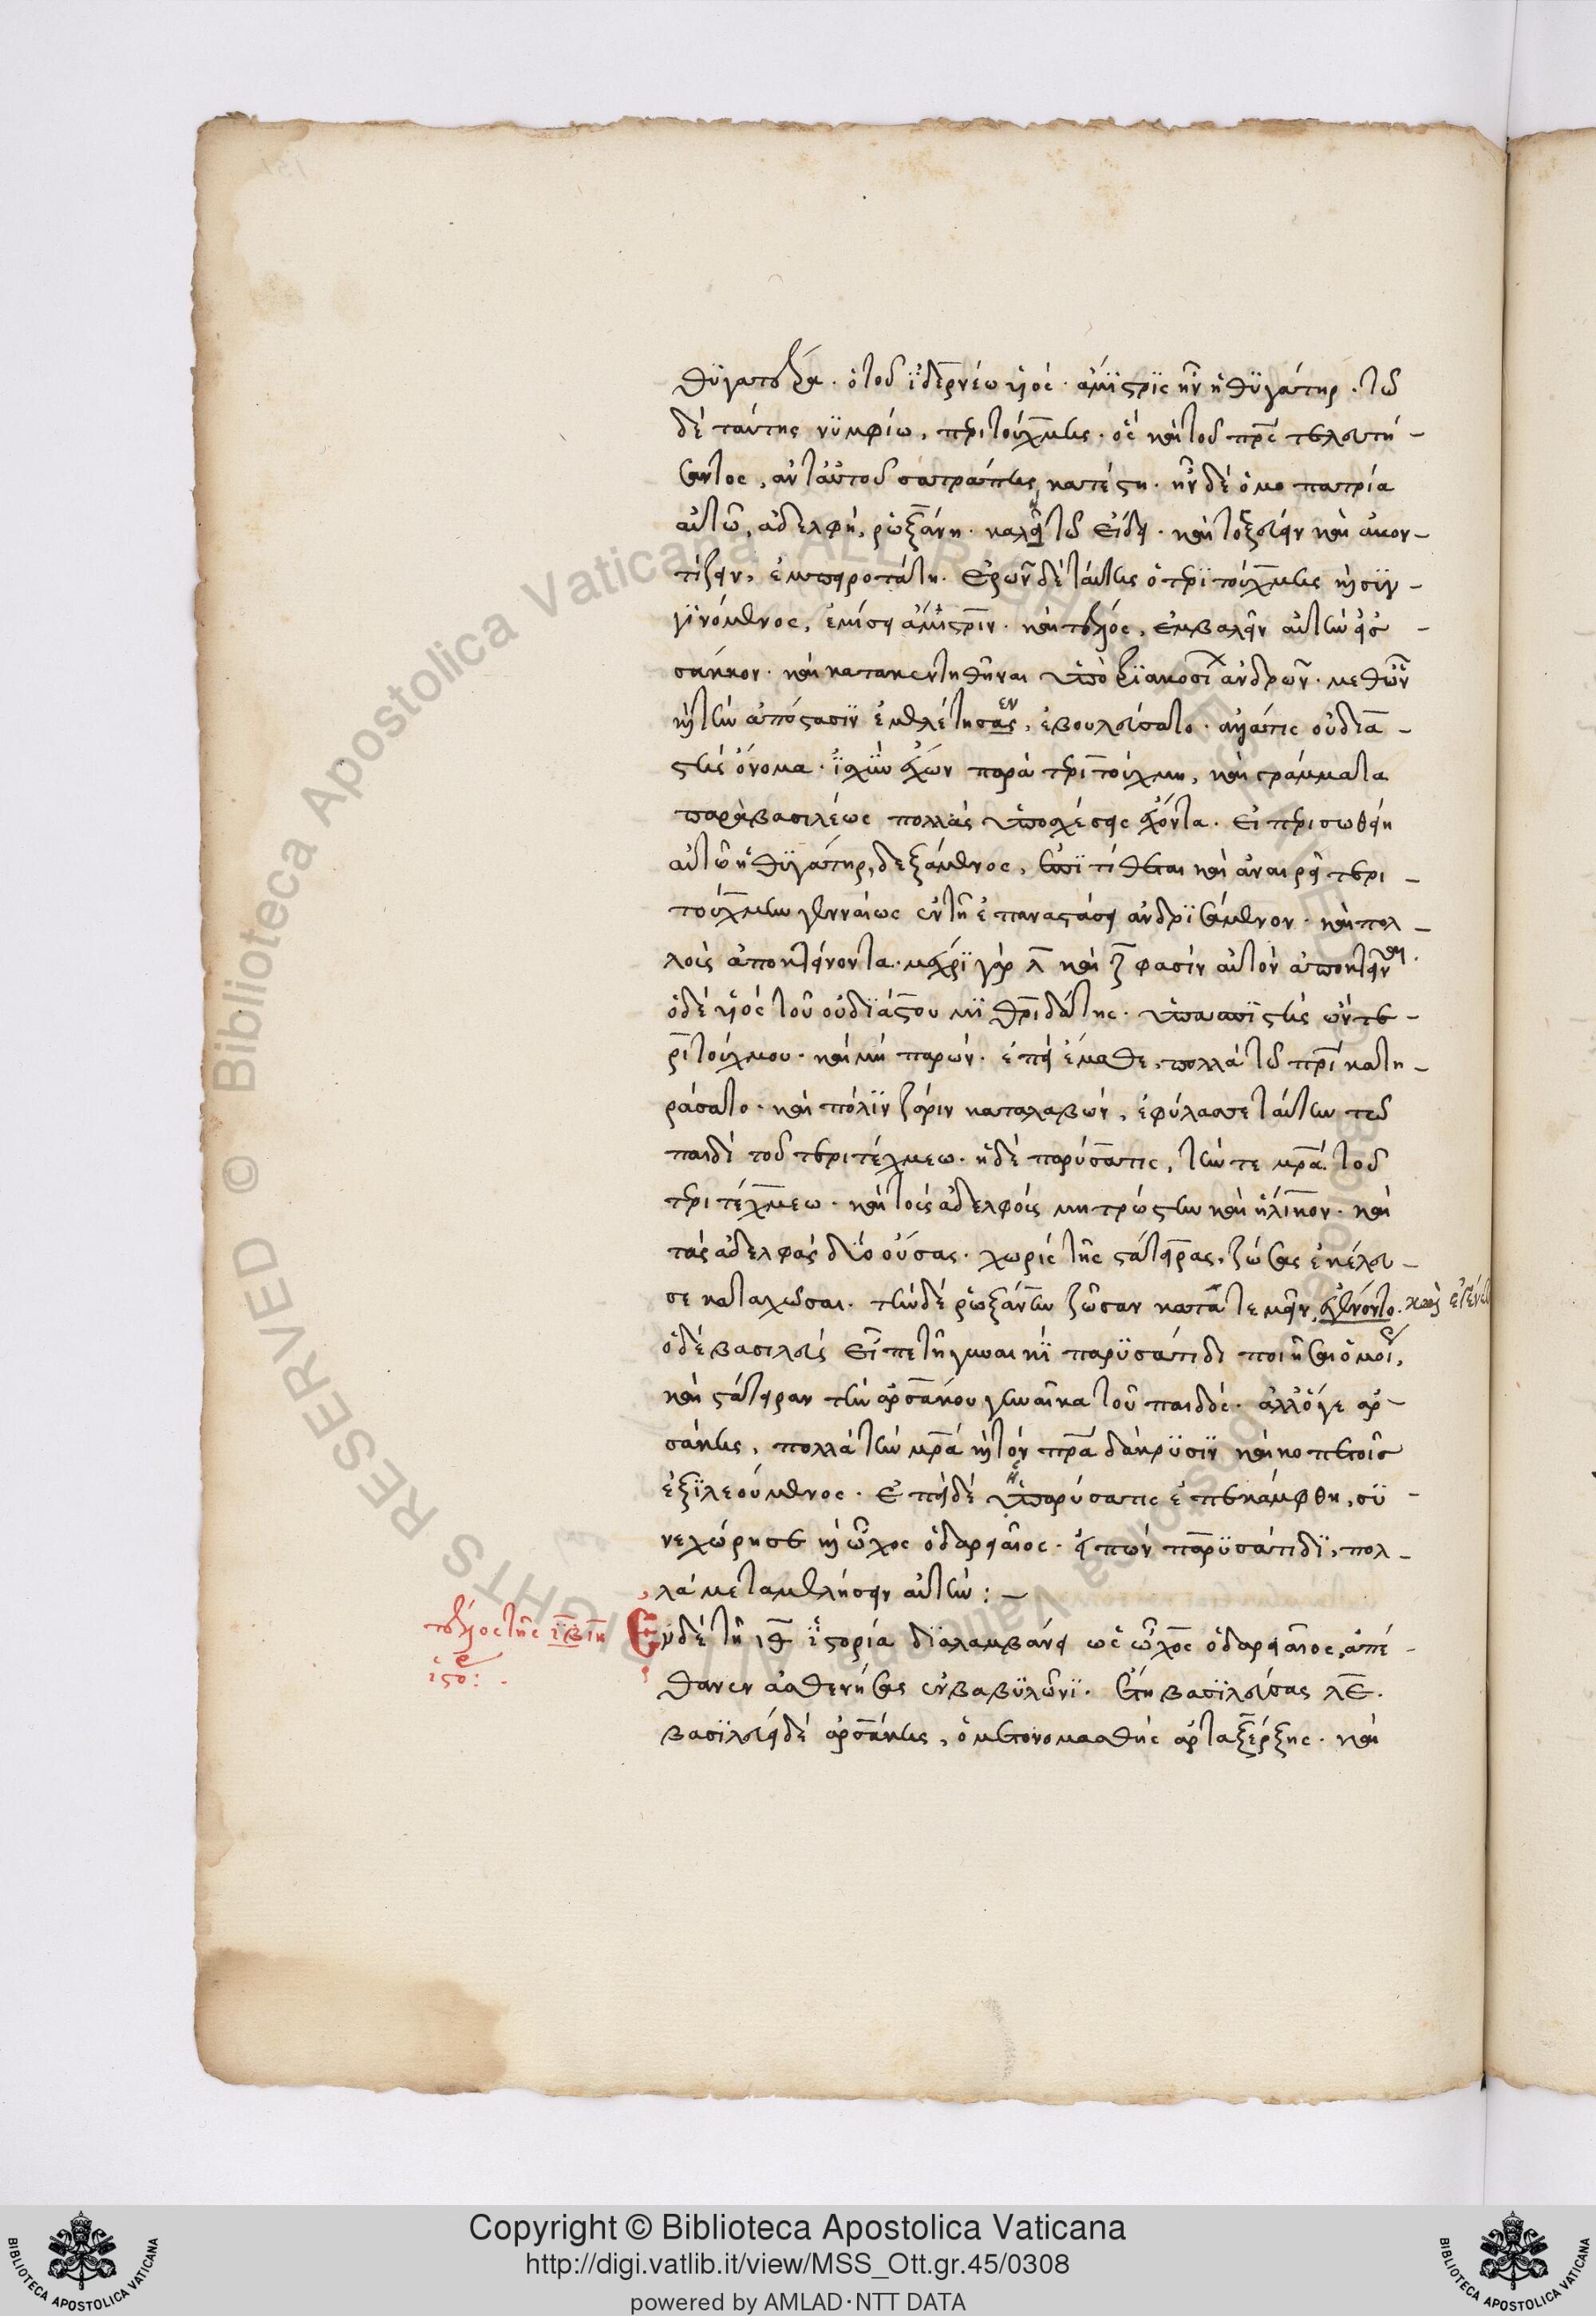 θυγατέρα. ὁ τοῦ ἰδέρνέω υἱός. ἄμιστρις ἦν ἡ θυγάτηρ. τῶ
δὲ ταύτης νυμφίω, τεριτούχμης. ὃς καὶ τοῦ πρς τελευτή-
σαντος, ἀντ αὐτοῦ σατράπης κατέστη. ἦν δὲ ὁμοπατρία
αὐτῶ, ἀδελφή, ῥωξάνη. καλὴ τῶ εἴδει. καὶ τοξεύειν καὶ ἀκον-
τίζειν, ἐμπειροτάτη. ἐρῶν δὲ ταύτης ὁ τεριτούχμης κὶ συγ-
γινόμενος, ἐμίσει ἄμιστριν. καὶ τέλος, ἐμβαλεῖν αὐτὴν εἰς
σάκκον. καὶ κατακεντηθῆναι ὑπὸ τριακοσίων ἀνδρῶν. μεθ ὧν
κὶ τὴν ἀπόστασιν ἐμελέτησας, ἐβουλεύσατο. ἀλλά τις οὐδιά-
στης ὄνομα. ἰσχὺν ἔχων παρὰ τεριτούχμη, καὶ γράμματα
παρὰ βασιλέως πολλὰς ὑποσχέσεις ἔχοντα. εἰ περισωθείη
αὐτῶ ἡ θυγάτηρ, δεξάμενος, ἐπιτίθεται καὶ ἀναιρεῖ τερι-
τούχμην γενναίως ἐν τῆ ἐπαναστάσει ἀνδρισάμενον. καὶ πολ-
λοὺς ἀποκτείνοντα. μέχρι γὰρ λ καὶ ζ φασὶν αὐτὸν ἀποκτεῖναι.
ὁ δὲ υἱὸς τοῦ οὐδιάστου μιθριδάτης. ὑπασπιστὴς ὢν τε-
ριτούχμου. καὶ μὴ παρών. ἐπεὶ ἔμαθε, πολλὰ τῶ πρὶ κατη-
ράσατο. καὶ πόλιν ζάριν καταλαβών, ἐφύλασσε ταύτην τῶ
παιδὶ τοῦ τεριτέχμεω. ἡ δὲ παρύσατις, τήν τε μρα τοῦ
τεριτέχμεω. καὶ τοὺς ἀδελφοὺς μητρώστην καὶ ἥλικον. καὶ
τὰς ἀδελφὰς δύο οὔσας. χωρὶς τῆς στατείρας, ζώσας ἐκέλευ-
σε καταχῶσαι. τὴν δὲ ῥωξάνην ζῶσαν κατατεμεῖν, ἐγένοντο. καὶ ἐγένετο
ὁ δὲ βασιλεὺς εἶπε τῆ γυναικὶ παρυσάτιδι ποιῆσαι ὁμοίως,
καὶ στάτειραν τὴν ἀρσάκου γυναῖκα τοῦ παιδός. ἀλλ ὅγε ἀρ-
σάκης, πολλὰ τὴν μρα κὶ τὸν πρα δάκρυσιν καὶ κοπετοῖς
ἐξιλεούμενος. ἐπεὶ δὲ ἡ παρύσατις ἐπεκάμφθη, συ-
νεχώρησε κὶ ὦχος ὁ δαρειαῖος. εἰπὼν παρυσάτιδι, πολ-
λὰ μεταμελήσειν αὐτήν: –
τέλος τῆς ιβ ιη
ἱστο:
Ἐν δὲ τῆ ιθ ἱστορία διαλαμβάνει ὡς ὦχος ὁ δαρειαῖος, ἀπέ-
θανεν ἀσθενήσας ἐν βαβυλῶνι. ἔτη βασιλεύσας λε.
βασιλεύει δὲ ἀρσάκης, ὁ μετονομασθεὶς ἀρταξέρξης. καὶ
© Biblioteca Apostolica Vaticana. ALL RIGHTS RESERVED
Copyright © Biblioteca Apostolica Vaticana
http://digi.vatlib.it/view/MSS_Ott.gr.45/0308
powered by AMLAD·NTT DATA
BIBLIOTECA APOSTOLICA VATICANA
BIBLIOTECA APOSTOLICA VATICANA